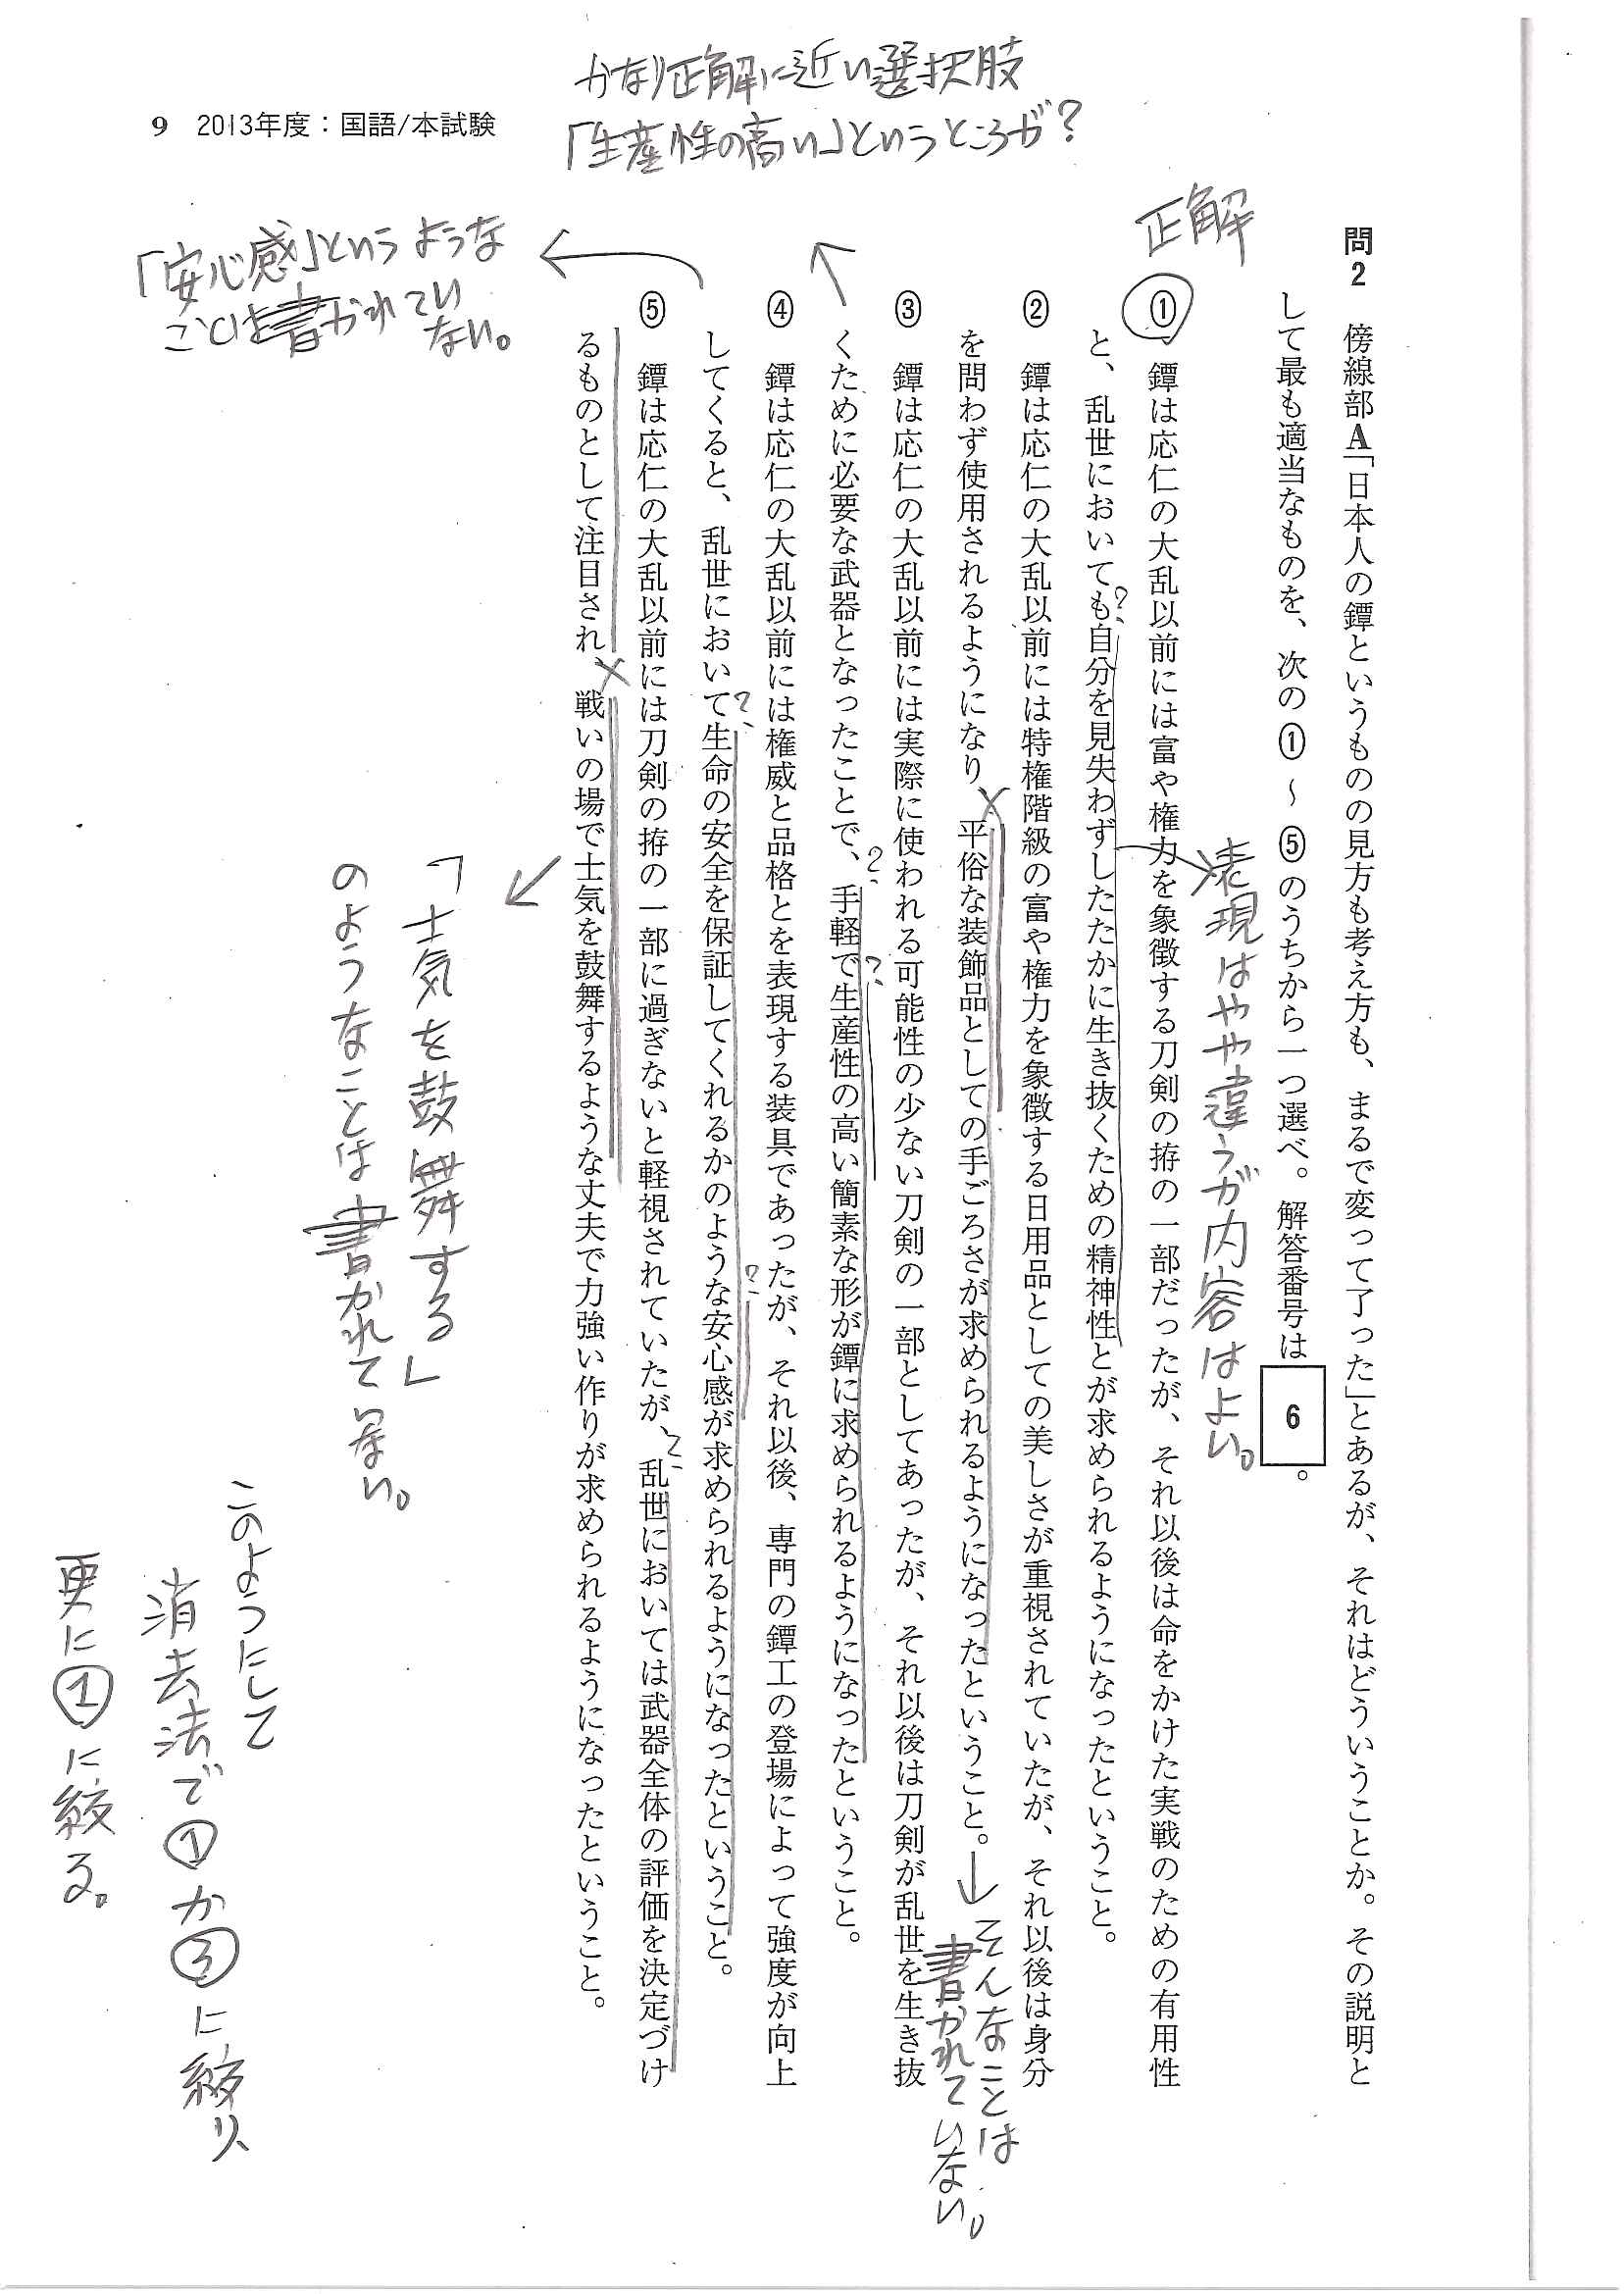 9 2013年度：国語/本試験
かなり正解に近い選択肢
「生産性の高い」というところが？
正解
問2 傍線部A「日本人の鐔というものの見方も考え方も、まるで変って了った」とあるが、それはどういうことか。その説明と
して最も適当なものを、次の①～⑤のうちから一つ選べ。解答番号は 6 。
表現はやや違うが内容はよい。
① 鐔は応仁の大乱以前には富や権力を象徴する刀剣の拵の一部だったが、それ以後は命をかけた実戦のための有用性
と、乱世においても自分を見失わずしたたかに生き抜くための精神性とが求められるようになったということ。
?
② 鐔は応仁の大乱以前には特権階級の富や権力を象徴する日用品としての美しさが重視されていたが、それ以後は身分
を問わず使用されるようになり平俗な装飾品としての手ごろさが求められるようになったということ。
×
そんなことは
書かれていない。
③ 鐔は応仁の大乱以前には実際に使われる可能性の少ない刀剣の一部としてあったが、それ以後は刀剣が乱世を生き抜
くために必要な武器となったことで、手軽で生産性の高い簡素な形が鐔に求められるようになったということ。
?
?
④ 鐔は応仁の大乱以前には権威と品格とを表現する装具であったが、それ以後、専門の鐔工の登場によって強度が向上
してくると、乱世において生命の安全を保証してくれるかのような安心感が求められるようになったということ。
?
?
「安心感」というような
ことは書かれてい
ない。
⑤ 鐔は応仁の大乱以前には刀剣の拵の一部に過ぎないと軽視されていたが、乱世においては武器全体の評価を決定づけ
るものとして注目され、戦いの場で士気を鼓舞するような丈夫で力強い作りが求められるようになったということ。
?
×
「士気を鼓舞する」
のようなことは書かれていない。
このようにして
消去法で①か③に絞り、
更に①に絞る。